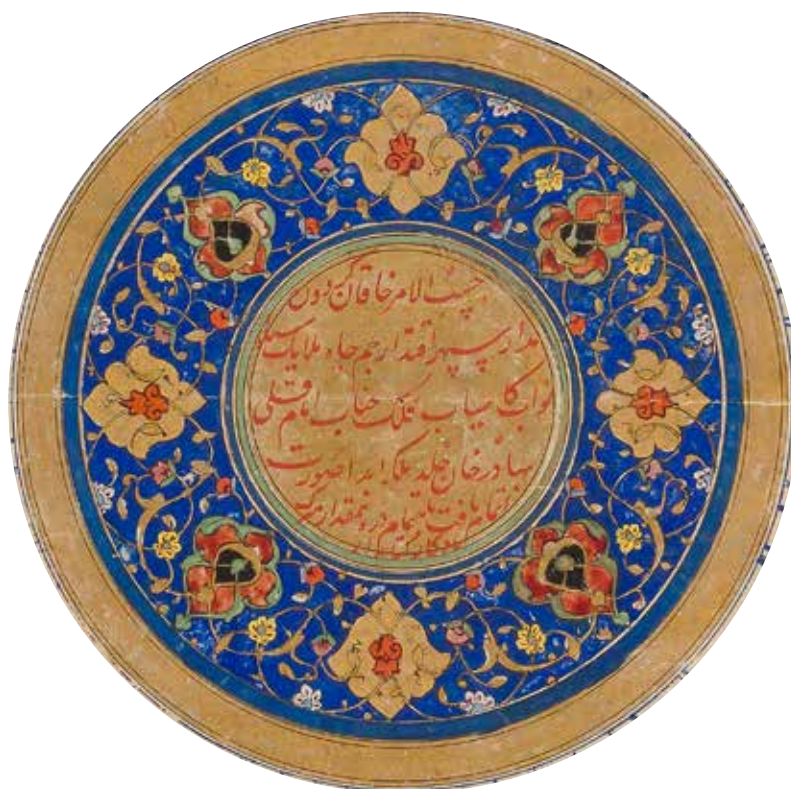 حسب الامر خاقان گردون
مدار سپهر اقتدار جم جاه ملایک سپاه
نواب کامیاب فلک جناب امام قلی
بهادر خان خلد ملکه ابدا صورت
اتمام یافت باهتمام